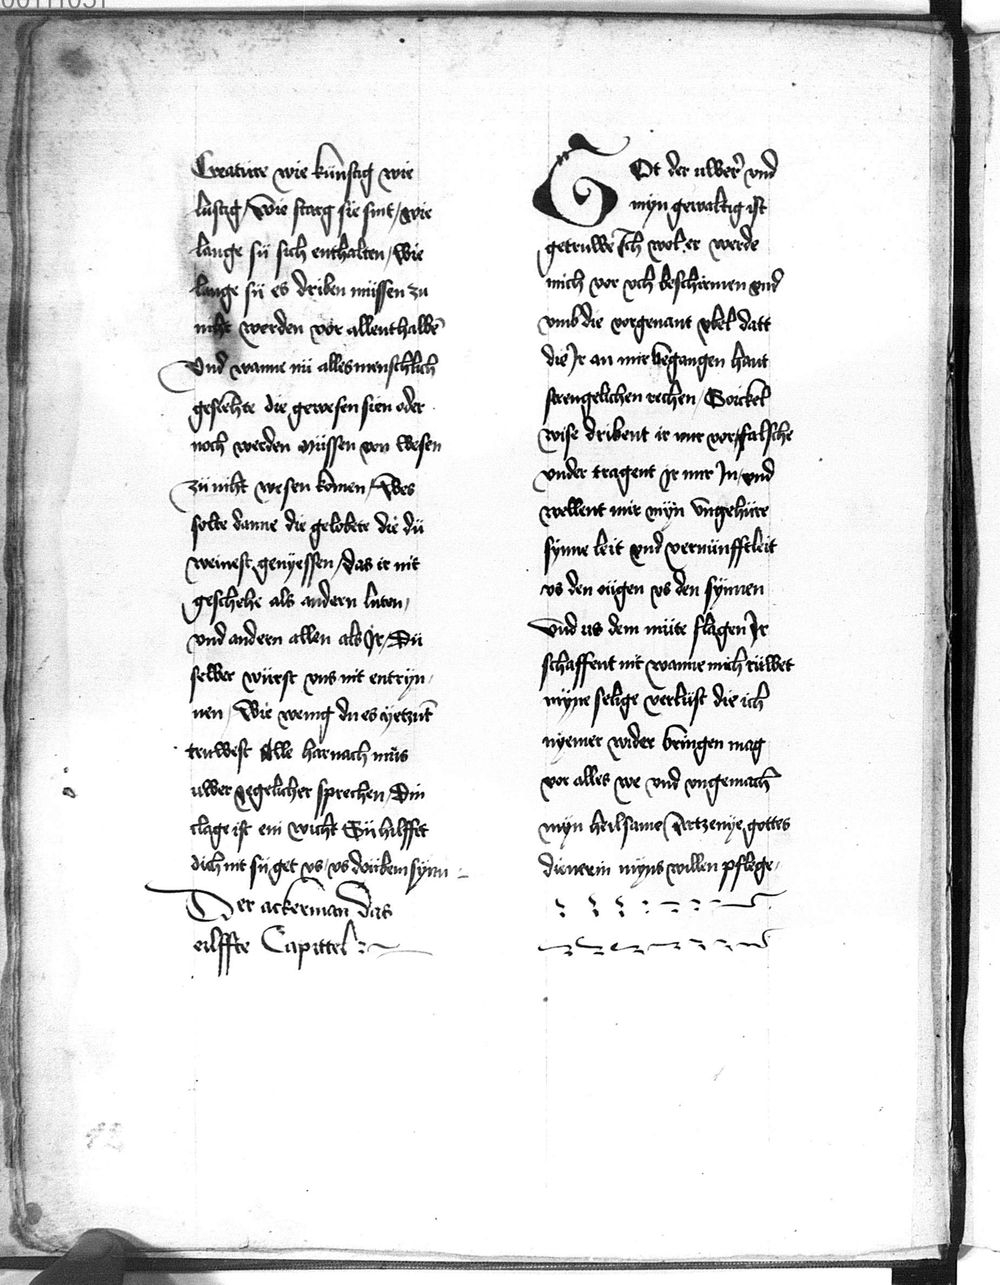 Creature wie künstig wie
lustig / Wie starg sie sint / wie
lange sü sich enthalten / Wie
lange sü es driben müssen zu
niht werden vor allenthalbē
Vnd wanne nü alles menschlich
geslehte die gewesen sien oder
noch werden müssen von wesen
zü niht wesen komen / Wes
solte danne die gelobete die dü
weinest genyessen / das ir nit
geschehe als andern luten /
vnd andern allen als Jr / Dü
selber würst vns nit entryn /
nen / Wie wenig du es yetzūt
truwest Alle harnach müs
uwer yegelicher sprechen / Din
clage ist ein wicht Sü hilffet
dich nit sü get vs / vs doubem synn
Der ackerman das
eilffte Capittel
GOt der uwer vnd
myn gewaltig ist
getruwe Ich wol. er werde
mich vor uch beschirmen vnd
vmb die vorgenant vbel datt
die Jr an mir begangen hant
strengelichen rechen / Goickel
wise dribent ir mir vor / falsche
vnder tragent Jr mir Jn / vnd
wellent mir myn vngehüre
synne leit vnd vernünfftleit
vs den ougen vs den synnen
vnd us dem müte slagen Jr
schaffent nit wanne mich rüwet
myne selige verlüst die ich
nyemer wider bringen mag
vor alles we vnd vngemach
myn heilsame Artzenye gottes
dienerin myns willen pflege